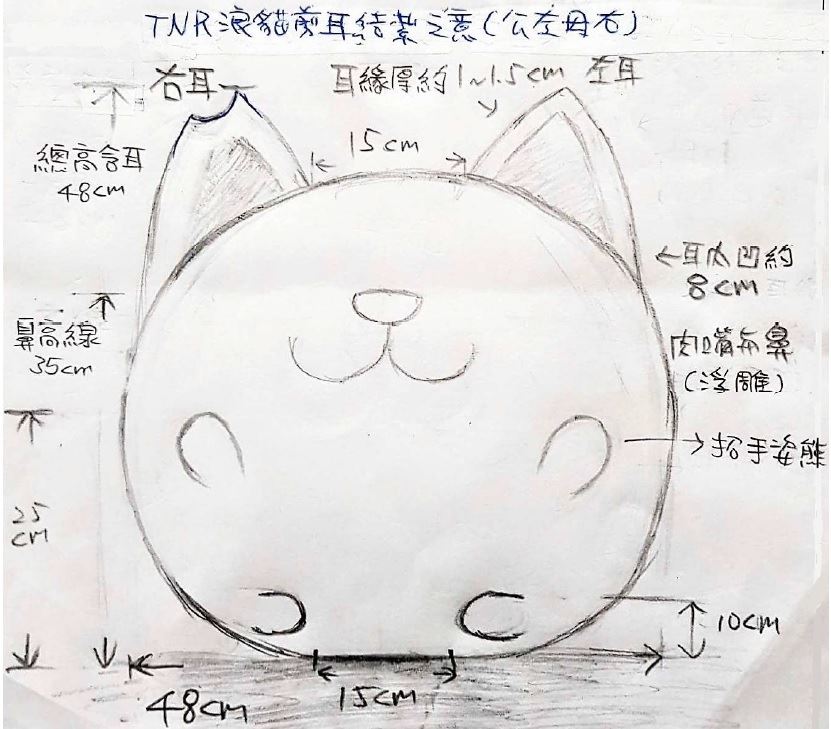 TNR浪貓剪耳結紮之意(公左母右)
右耳
耳緣厚約1~1.5cm 左耳
15cm
總高含耳
48cm
←耳內凹約
8cm
鼻高線
35cm
肉嘴布鼻
(浮雕)
招手姿態
25
cm
10cm
48cm
15cm